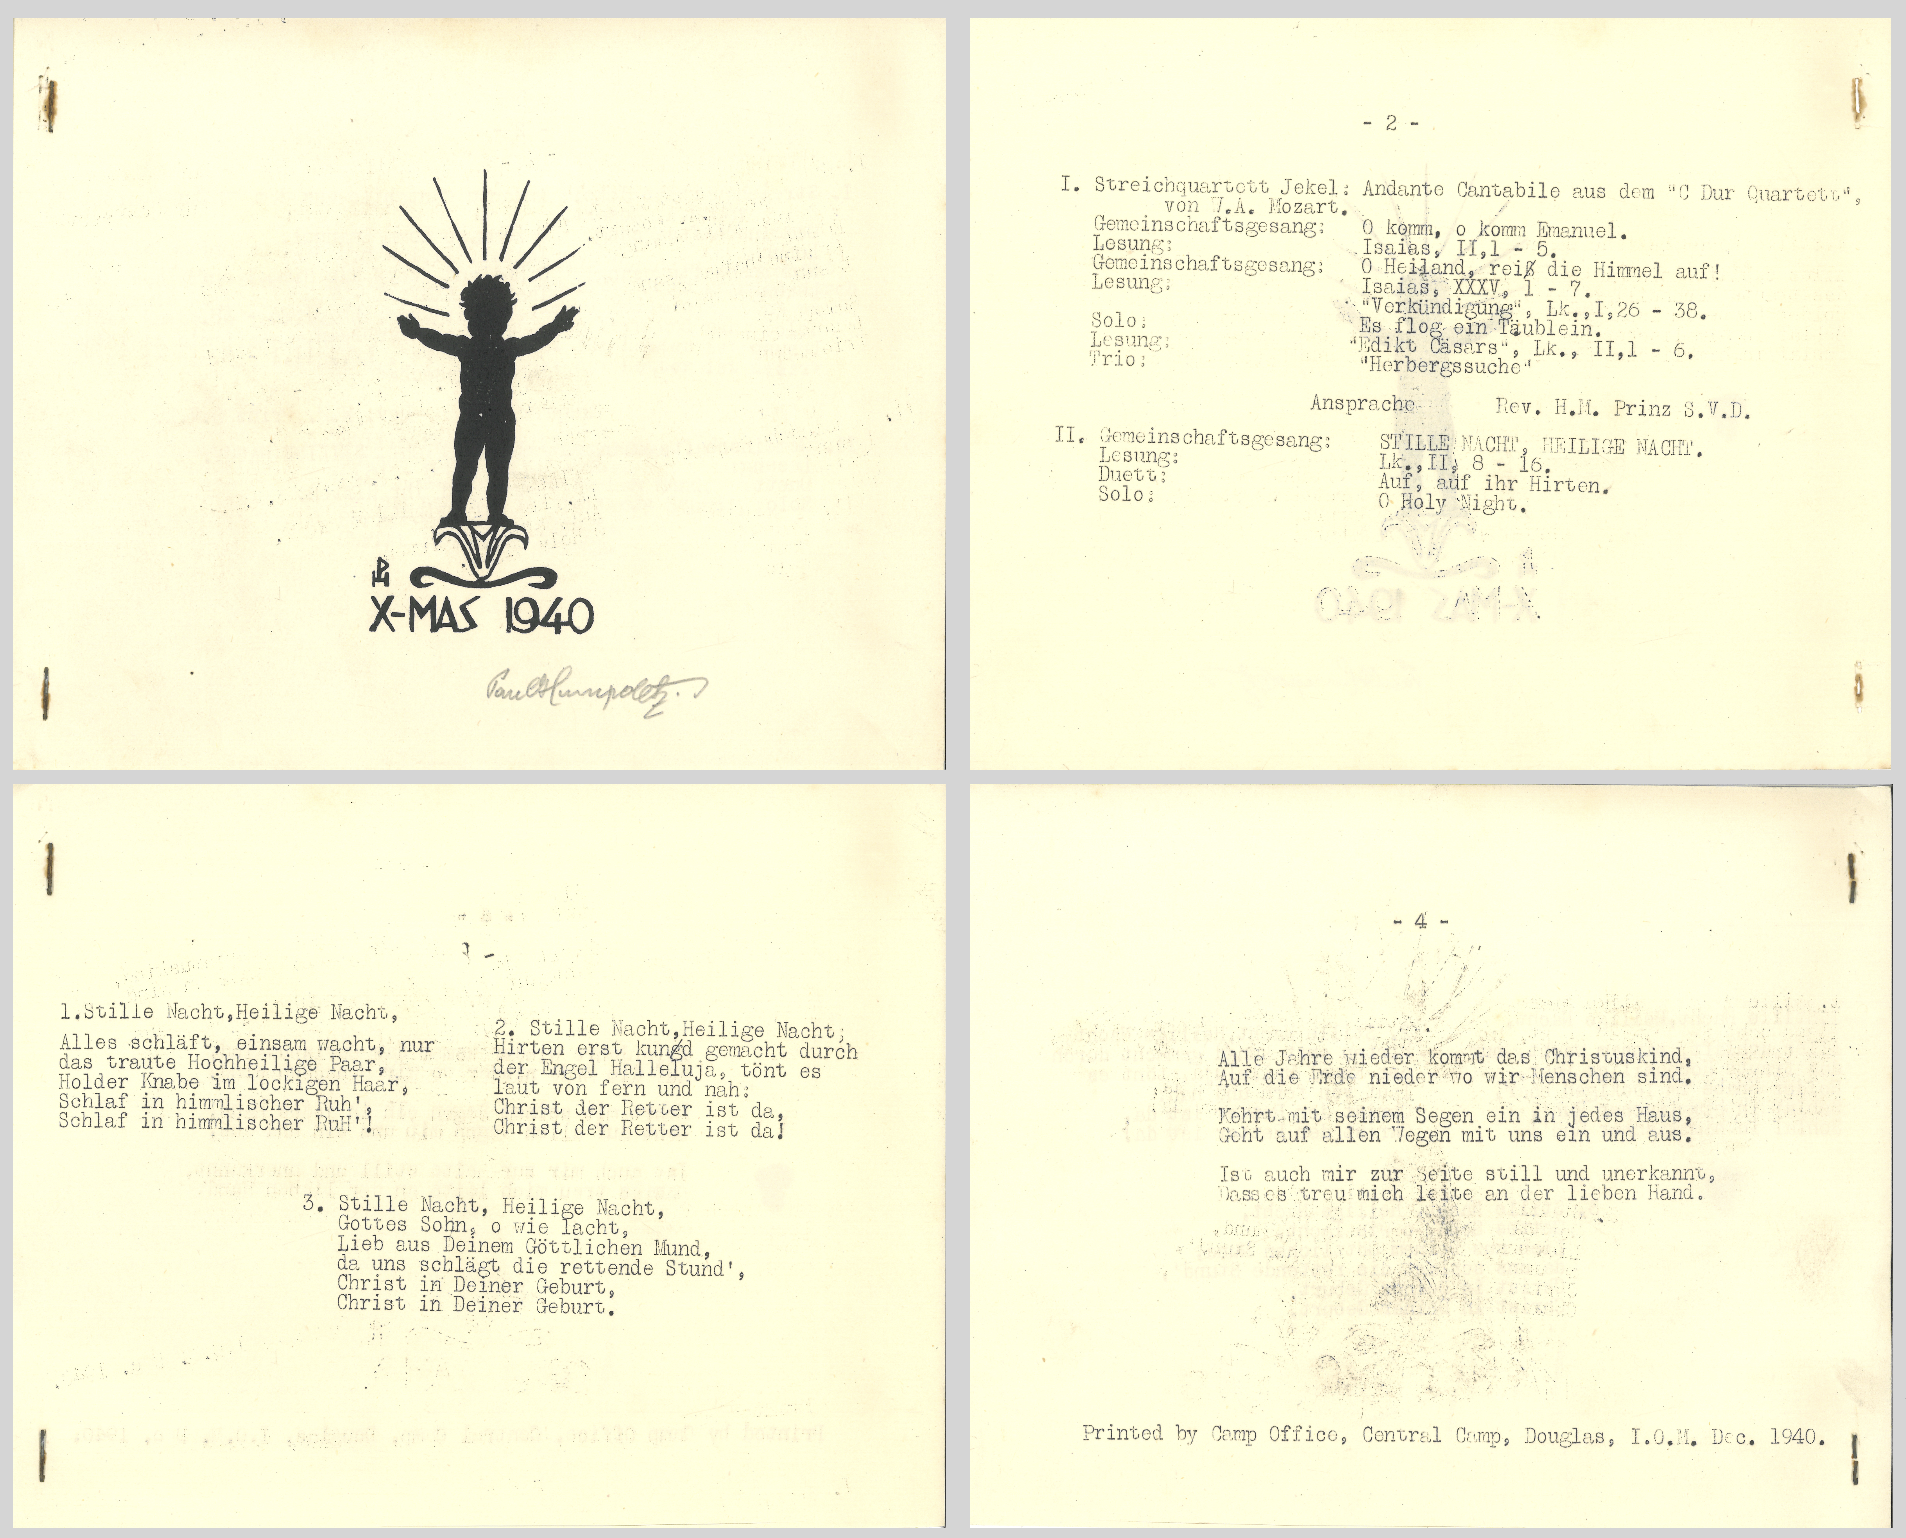 X-MAS 1940
- 2 -
I. Streichquartett Jekel: Andante Cantabile aus dem "C Dur Quartett",
von W.A. Mozart.
Gemeinschaftsgesang: O komm, o komm Emanuel.
Lesung: Isaias, II,1 - 5.
Gemeinschaftsgesang: O Heiland, reiß die Himmel auf!
Lesung: Isaias, XXXV, 1 - 7.
"Verkündigung", Lk.,I,26 - 38.
Solo: Es flog ein Täublein.
Lesung: "Edikt Cäsars", Lk., II,1 - 6.
Trio: "Herbergssuche"
Ansprache Rev. H.M. Prinz S.V.D.
II. Gemeinschaftsgesang: STILLE NACHT, HEILIGE NACHT.
Lesung: Lk.,II, 8 - 16.
Duett: Auf, auf ihr Hirten.
Solo: O Holy Night.
1.Stille Nacht,Heilige Nacht,
Alles schläft, einsam wacht, nur
das traute Hochheilige Paar,
Holder Knabe im lockigen Haar,
Schlaf in himmlischer Ruh',
Schlaf in himmlischer RuH'!
2. Stille Nacht,Heilige Nacht;
Hirten erst kund gemacht durch
der Engel Halleluja, tönt es
laut von fern und nah:
Christ der Retter ist da,
Christ der Retter ist da!
3. Stille Nacht, Heilige Nacht,
Gottes Sohn, o wie lacht,
Lieb aus Deinem Göttlichen Mund,
da uns schlägt die rettende Stund',
Christ in Deiner Geburt,
Christ in Deiner Geburt.
- 4 -
Alle Jahre wieder kommt das Christuskind,
Auf die Erde nieder wo wir Menschen sind.
Kehrt mit seinem Segen ein in jedes Haus,
Geht auf allen Wegen mit uns ein und aus.
Ist auch mir zur Seite still und unerkannt,
Dass es treu mich leite an der lieben Hand.
Printed by Camp Office, Central Camp, Douglas, I.O.M. Dec. 1940.